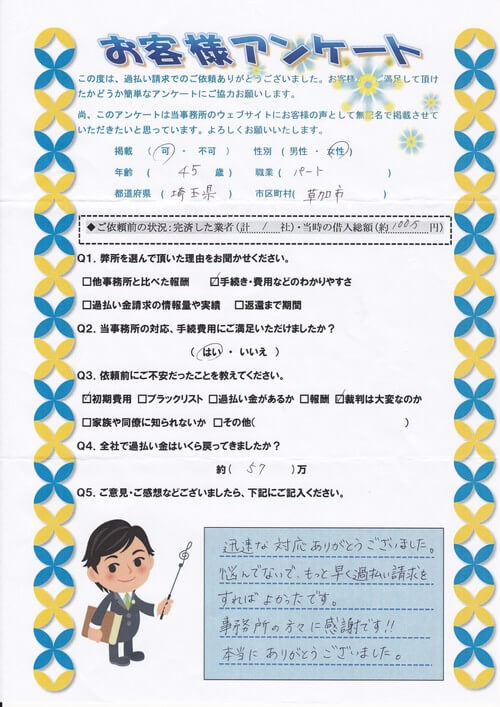 お客様アンケート
この度は、過払い請求でのご依頼ありがとうございました。お客様 ご満足して頂け
たかどうか簡単なアンケートにご協力お願いします。
尚、このアンケートは当事務所のウェブサイトにお客様の声として無記名で掲載させて
いただきたいと思っています。よろしくお願いいたします。
掲載 ( 可 ・ 不可 ) 性別 ( 男性 ・ 女性 )
年齢 ( 45 歳 ) 職業 ( パート )
都道府県 ( 埼玉県 ) 市区町村( 草加市 )
◆ご依頼前の状況：完済した業者(計 1 社)・当時の借入総額(約 100万 円)
Q1．弊所を選んで頂いた理由をお聞かせください。
□他事務所と比べた報酬 ☑手続き・費用などのわかりやすさ
□過払い金請求の情報量や実績 □返還まで期間
Q2．当事務所の対応、手続費用にご満足いただけましたか？
( はい ・ いいえ )
Q3．依頼前にご不安だったことを教えてください。
☑初期費用 □ブラックリスト □過払い金があるか □報酬 ☑裁判は大変なのか
□家族や同僚に知られないか □その他( )
Q4．全社で過払い金はいくら戻ってきましたか？
約( 57 )万
Q5．ご意見・ご感想などございましたら、下記にご記入ください。
迅速な対応ありがとうございました。
悩んでないで、もっと早く過払い請求を
すればよかったです。
事務所の方々に感謝です!!
本当にありがとうございました。